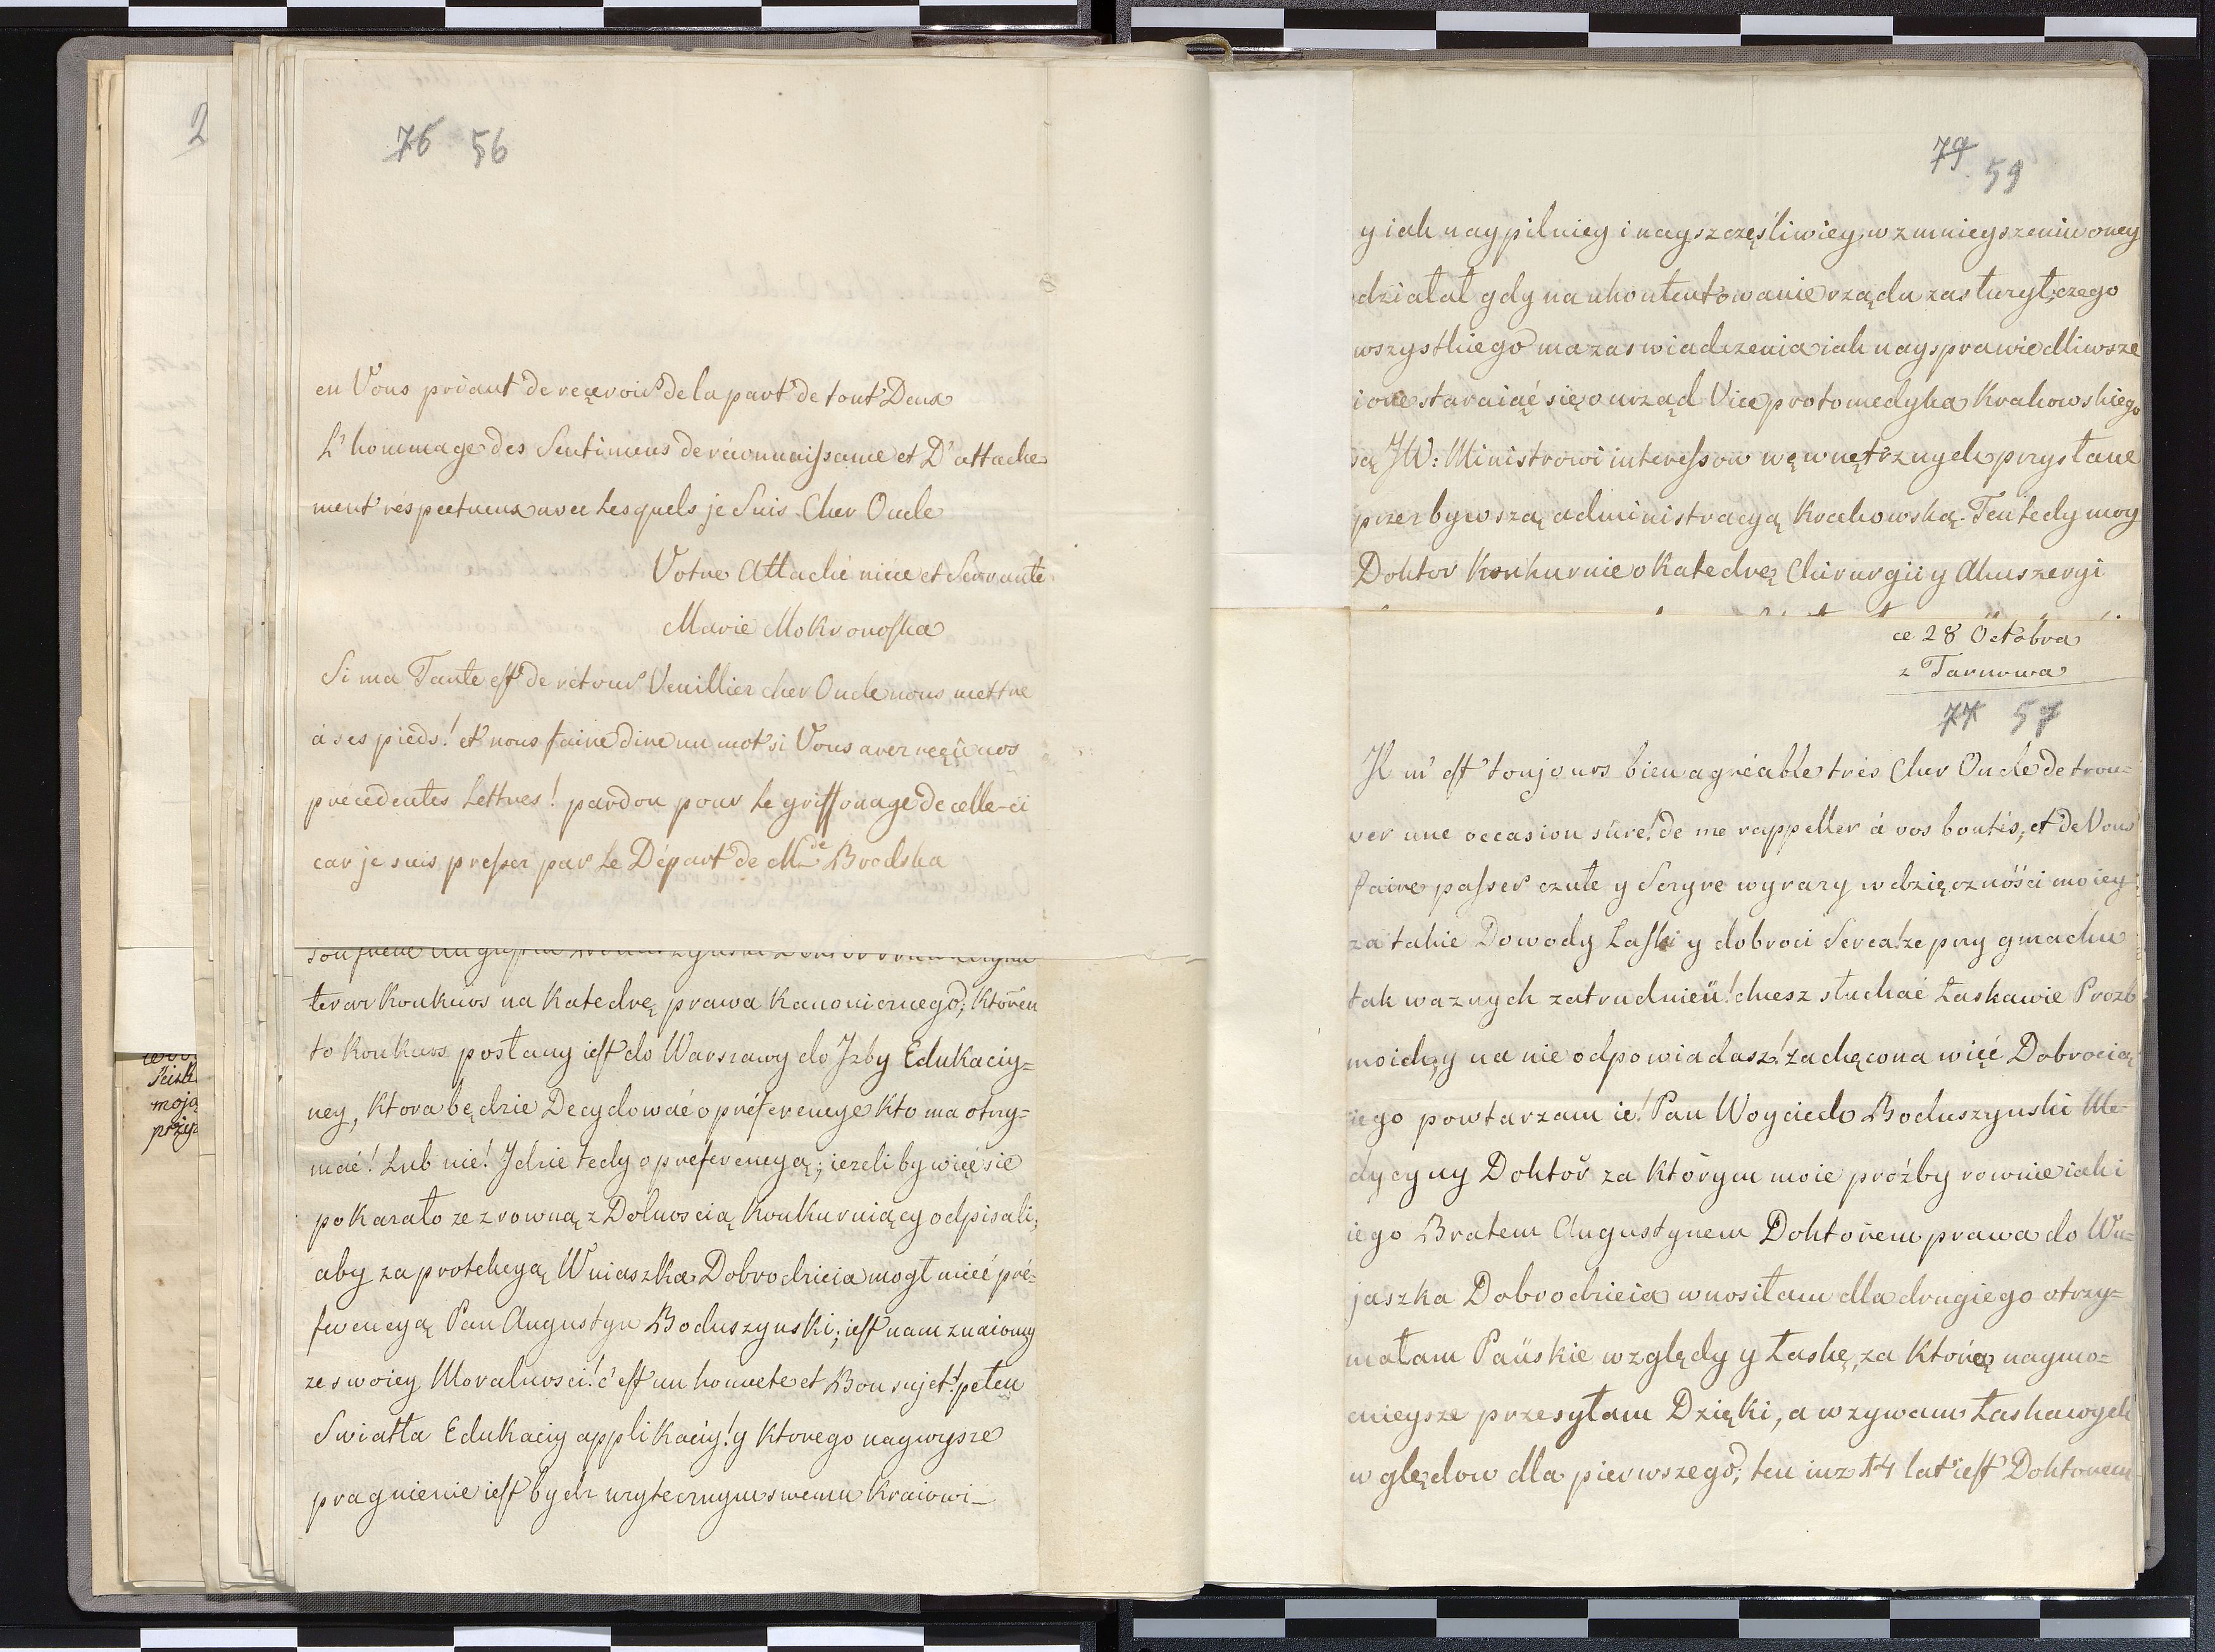 2
76 56
en Vous priant de reçevoir de la part de tout Deux
L'hommage des Sentimens de reconnaissance et D'attache
ment respectueux avec Lesquels je Suis Cher Oncle
Votre Attaché niéce et Servante
Marie Mokronoska
Si ma Tante est de retour Veuillier cher Oncle nous mettre
à ses pieds! et nous faire dire un mot si Vous avez reçû nos
précedentes Lettres! pardon pour Le griffonage de celle-ci
car je suis presser par Le Départ de Mde Brodska
teraz Konkurs na Katedrę prawa Kanonicznego; Ktoren
to Konkurs posłany iest do Warszawy do Jzby Edukaciy=
ney, Ktora będzie Decydować o préferencye Kto ma otrzy=
mać! Lub nie! Jdzie tedy o preferencyą; iezeli by więć sie
pokazało ze z rowną z Dolnoscią Konkuruiący odpisali;
aby za protekcyą Wuiaszka Dobrodzieia mogł mieć pré=
ferencyą Pan Augustyn Boduszynski; iest nam znaiomy
ze swoiey Moralnosci! c'est un honnete et Bon sujet! pełen
Swiatła Edukaciy applikaciy! y Ktorego naywysze
pragnienie iest bydz uzytecznym swemu Kraiowi_
moją
79 59
y iak naypilniey i nayszczęśliwiey w zmnieyszeniu oney
działał gdy na ukontentowanie rządu zasłuzył; czego
wszystkiego ma zaswiadczenia iak naysprawiedliwsze
i one staraiąć się o urząd Vice protomedyka Krakowskiego
są JW: Ministrowi interessow węwnętrznych przysłane
przez bywszą administracyą Krakowską. Ten tedy moy
Doktor Konkuruie o Katedrę Chirurgii y Akuszeryi
ce 28 Octobra
z Tarnowa
77 57
Il m'est toujours bien agréable très Cher Oncle de trou=
ver une occasion sûre! de me rappeller à vos bontés, et de Vous
faire passer czułe y Sczyre wyrazy wdzięcznośći moiey
za takie Dowody Łaski y dobroci Serca! ze przy gmachu
tak waznych zatrudnień! chcesz słuchać Łaskawie Prozb
moich, y na nie odpowiadasz! zachęcona więć Dobrocią
iego powtarzam ie! Pan Woyciech Boduszynski Me=
dycyny Doktor za Ktorym moie proźby rownie iak i
iego Bratem Augustynem Doktorem prawa do Wu=
jaszka Dobrodzieia wnosiłam dla drugiego otrzy=
małam Pańskie względy y Łaskę, za Ktorą naymo=
cnieysze przesyłam Dzięki, a wzywam Łaskawych
wględow dla pierwszego; ten iuz 14 lat iest Doktorem